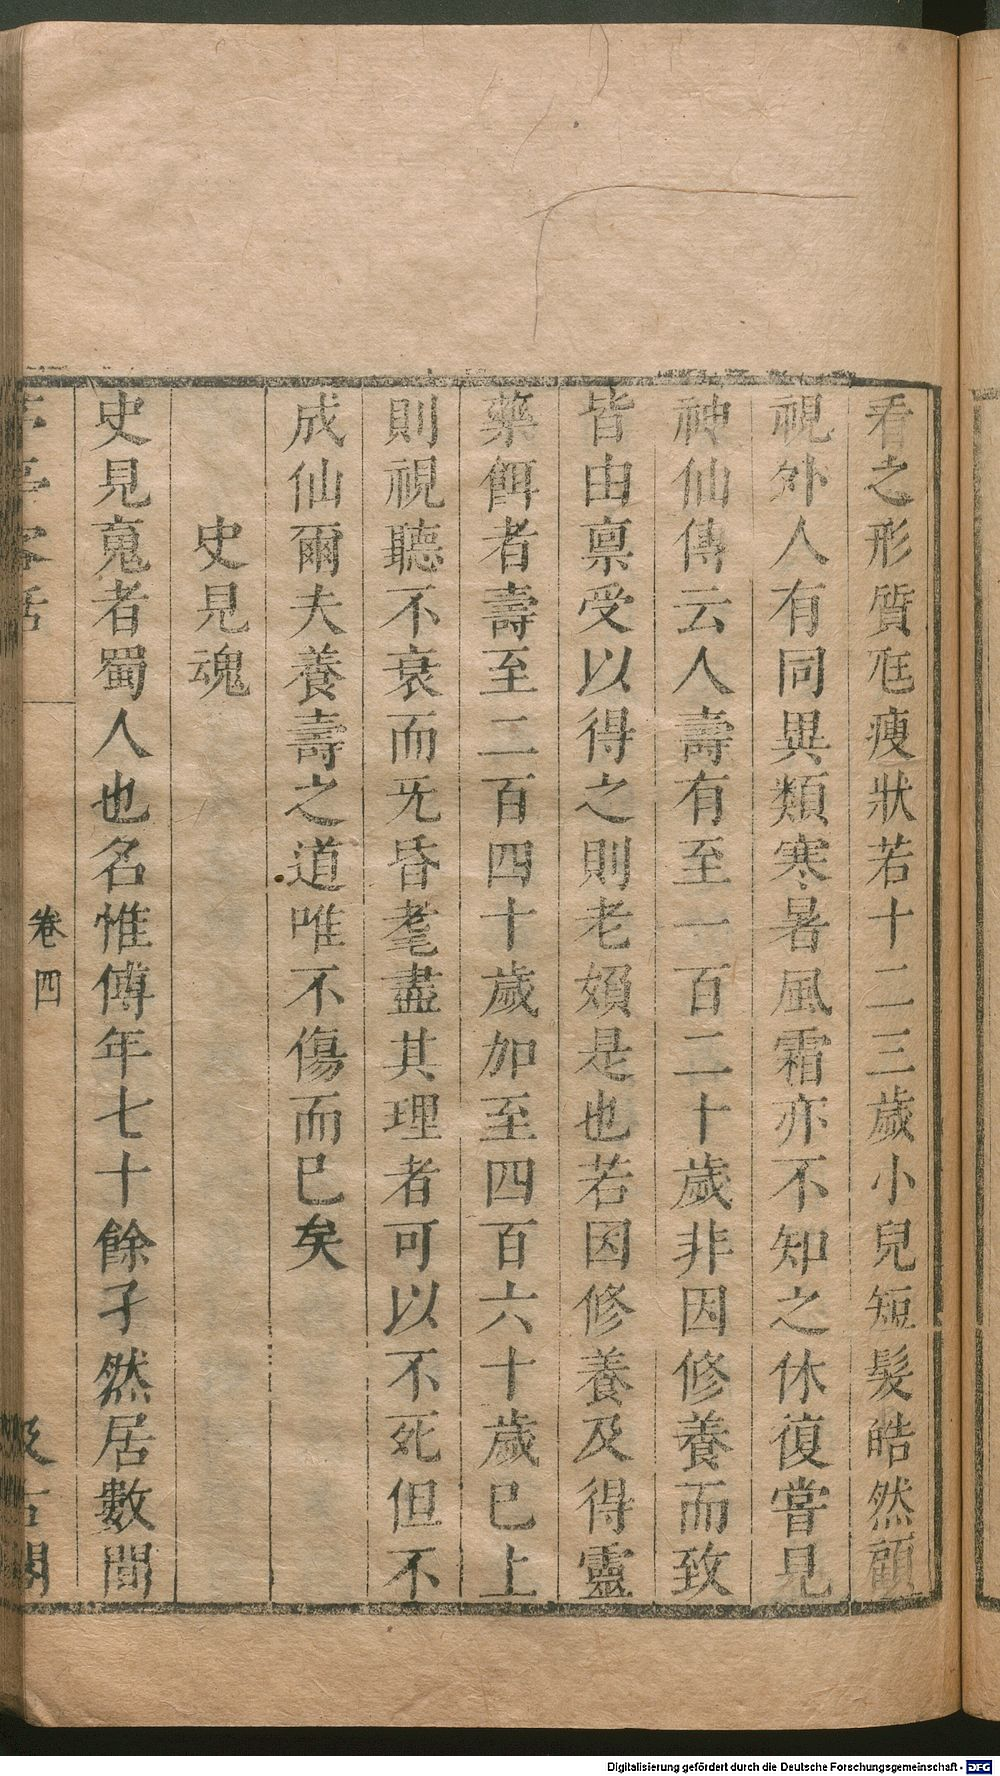 看之形質尫瘦狀若十二三歲小兒短髮皓然顧
視外人有同異類寒暑風霜亦不知之休復嘗見
神仙傳云人壽有至一百二十歲非因修養而致
皆由稟受以得之則老嬾是也若因修養及得靈
藥餌者壽至二百四十歲加至四百六十歲已上
則視聽不衰而旡昏耄盡其理者可以不死但不
成仙爾夫養壽之道唯不傷而已矣
史見魂
史見䰟者蜀人也名惟傅年七十餘孑然居數間
茅亭客話
卷四
汲古閣
Digitalisierung gefördert durch die Deutsche Forschungsgemeinschaft - DFG